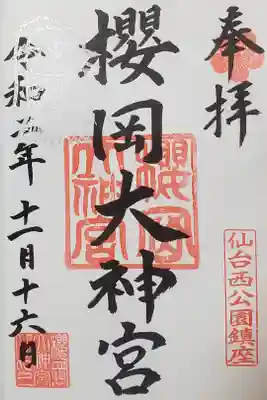 奉拝
仙台西公園鎮座
櫻岡大神宮
櫻岡
大神宮
令和五年十一月十六日